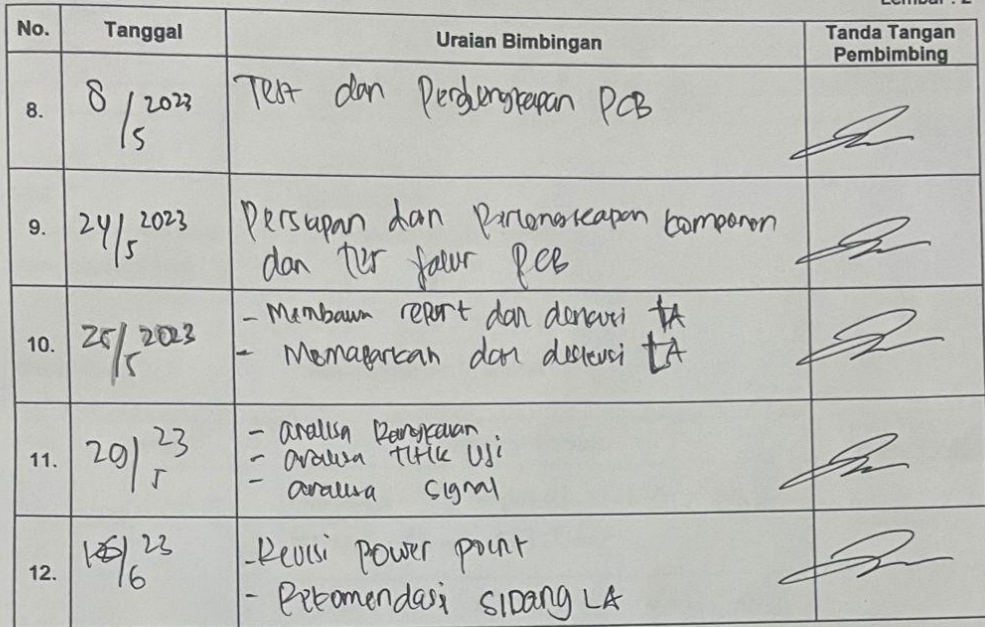 Lembar : 2
No. Tanggal Uraian Bimbingan Tanda Tangan
Pembimbing
8. 8/5 2023 Test dan Perlengkapan PCB
9. 24/5 2023 Persiapan dan Perlengkapan komponen
dan tes jalur PCB
10. 25/5 2023 - Membawa report dan diskusi tA
- Memaparkan dan diskusi tA
11. 29/5 23 - analisa Rangkaian
- analisa titik Uji
- analisa signal
12. /6 23 - Revisi power point
- Rekomendasi SIDang LA